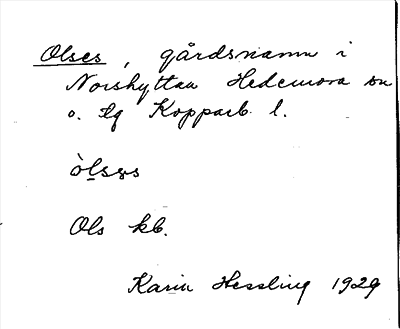 Olses, gårdsnamn i
Norshyttan Hedemora sn
o. tg Kopparb. l.
Ols kb.
Karin Hessling 1929